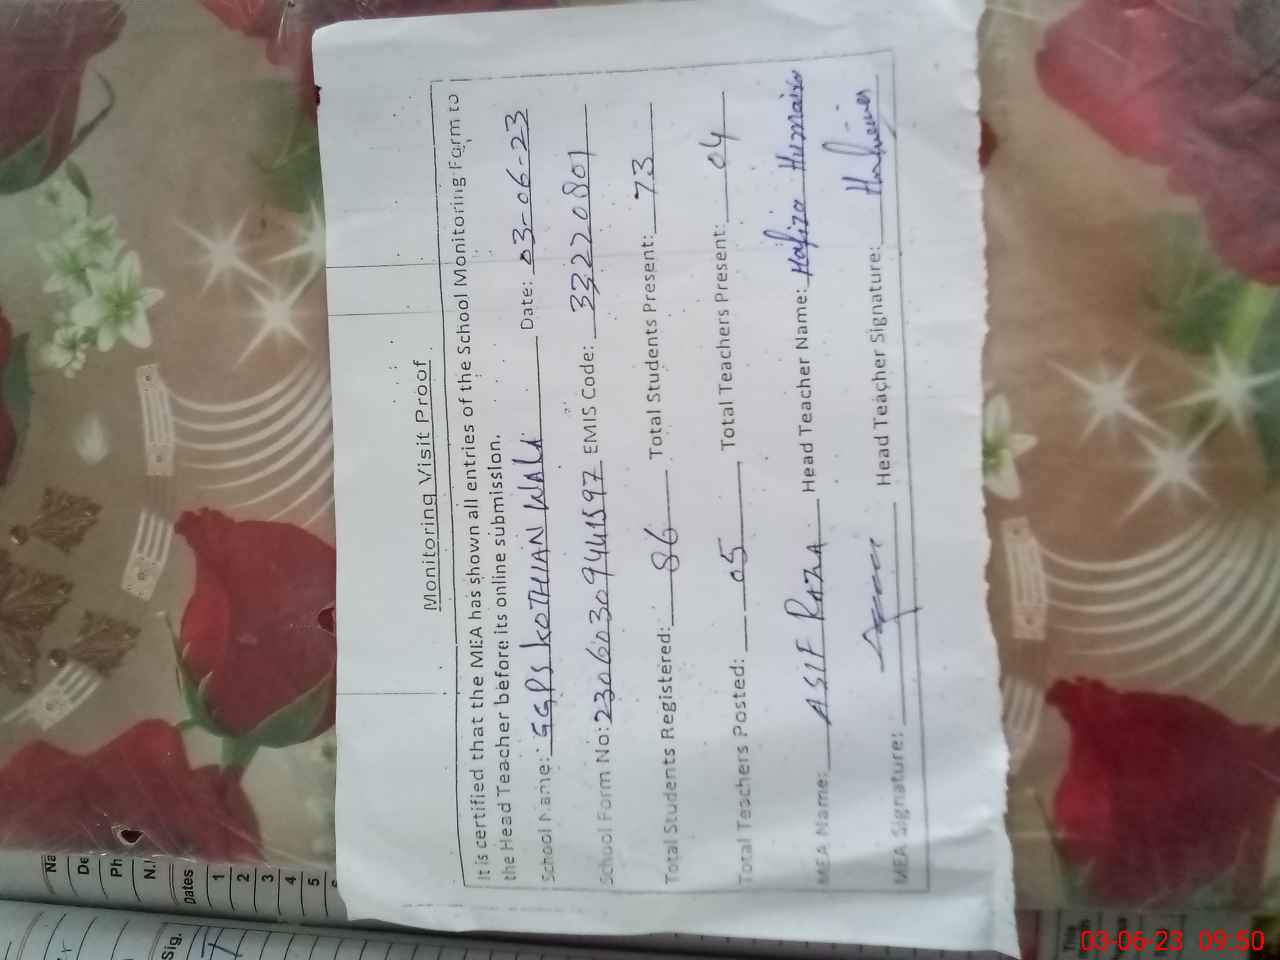 Monitoring Visit Proof
It is certified that the MEA has shown all entries of the School Monitoring Form to
the Head Teacher before its online submission.
School Name: GGPS KOTHIAN WALA Date: 03-06-23
School Form No: 23060309441597 EMIS Code: 33220801
Total Students Registered: 86 Total Students Present: 73
Total Teachers Posted: 05 Total Teachers Present: 04
MEA Name: ASIF RAZA Head Teacher Name: Hafiza Humaira
MEA Signature: Head Teacher Signature:
Na
De
Ph
N.I
Dates
1
2
3
4
5
Sig.
03-06-23 09:50